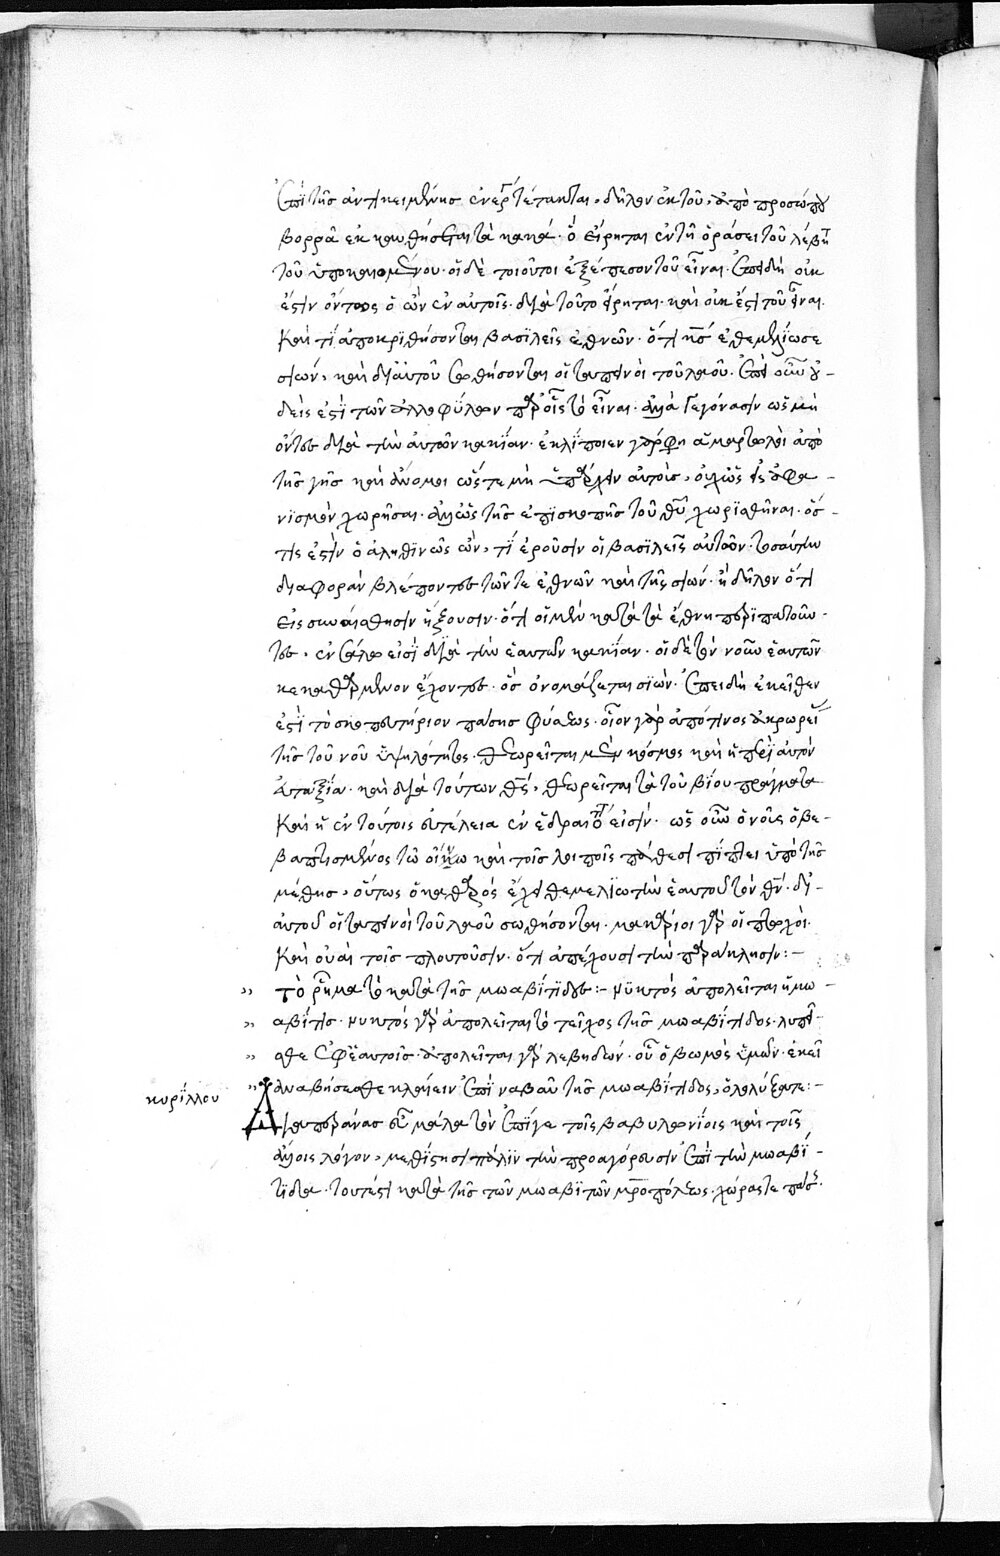 ἐπὶ τῆς ἀντικειμένης ἐνεργ τέτακται, δῆλον ἐκ τοῦ, ἀπὸ προσώπου
βορρᾶ ἐκκαυθήσεται τὰ κακά. ὃ εἴρηται ἐν τῇ ὁράσει τοῦ λέβητ
τοῦ ὑποκαιομένου. οἱ δὲ τοιοῦτοι ἐξέπεσον τοῦ εἶναι. ἐπειδὴ οὐκ
ἔστιν ὄντως ὁ ὢν ἐν αὐτοῖς. διὰ τοῦτο εἴρηται. καὶ οὐκ ἔστι τοῦ εἶναι.
Καὶ τί ἀποκριθήσονται βασιλεῖς ἐθνῶν. ὅτι κς ἐθεμελίωσε
σιών, καὶ δι αὐτοῦ σωθήσονται οἱ ταπεινοὶ τοῦ λαοῦ. ἐπεὶ οὖν οὐ-
δείς ἐστι τῶν ἀλλοφύλων παρ' οἷς τὸ εἶναι. ἀλλὰ γεγόνασιν ὡς μὴ
ὄντες διὰ τὴν αὐτῶν κακίαν. ἐκλίποιεν γὰρ φη ἁμαρτωλοὶ ἀπὸ
τῆς γῆς καὶ ἄνομοι ὥστε μὴ ὑπάρχειν αὐτούς, οὐχ ὡς εἰς ἀφα-
νισμὸν χωρῆσαι. ἀλλ' ὡς τῆς ἐπισκοπῆς τοῦ θυ χωρισθῆναι. ὅσ-
τις ἐστὶν ὁ ἀληθινῶς ὤν, τί ἐροῦσιν οἱ βασιλεῖς αὐτῶν. τοσαύτην
διαφορὰν βλέποντες τῶν τε ἐθνῶν καὶ τῆς σιών. ἢ δῆλον ὅτι
εἰς συναίσθησιν ἥξουσιν. ὅτι οἱ μὲν κατὰ τὰ ἔθνη περιπατοῦν-
τες, ἐν σάλω εἰσὶ διὰ τὴν ἑαυτῶν κακίαν. οἱ δὲ τὸν νοῦν ἑαυτῶν
κεκαθαρμένον ἔχοντες. ὃς ὀνομάζεται σιών. ἐπειδὴ ἐκεῖθεν
ἐστὶ τὸ σκοπευτήριον πάσης φύσεως. οἷον γὰρ ἀπό τινος ἀκρωρεί
τῆς τοῦ νοῦ ὑψηλότητος. θεωρεῖται μὲν κόσμος καὶ ἡ περὶ αὐτὸν
εὐταξία. καὶ διὰ τούτων θς, θεωρεῖται τὰ τοῦ βίου πράγματα
Καὶ ἡ ἐν τούτοις εὐτέλεια εἰσίν. ὡς οὖν ὁ νοῦς ὁ βε-
βαπτισμένος τῷ οἴνω καὶ τοῖς λοιποῖς πάθεσι πίπτει ὑπὸ τῆς
μέθης, οὕτως ὁ καθαρὸς ἔχει θεμελιωτὴν ἑαυτοῦ τὸν θν. δι'
αὐτοῦ οἱ ταπεινοὶ τοῦ λαοῦ σωθήσονται. μακάριοι γὰρ οἱ πτωχοί.
Καὶ οὐαὶ τοῖς πλουτοῦσιν. ὅτι ἀπέχουσι τὴν παράκλησιν:–
» τὸ ῥῆμα τὸ κατὰ τῆς μωαβίτιδος:– νυκτὸς ἀπολεῖται ἡ μω-
» αβῖτις. νυκτὸς γὰρ ἀπολεῖται τὸ τεῖχος τῆς μωαβίτιδος. λυπεῖ-
» σθε ἐφ' ἑαυτοῖς. ἀπολεῖται γὰρ λεβηδών. οὗ ὁ βωμὸς ὑμῶν. ἐκεῖ
» ἀναβήσεσθε κλαίειν ἐπὶ ναβαῦ τῆς μωαβίτιδος, ὀλολύξατε:–
κυρίλλου
Διαπεράνας εὖ μάλα τὸν ἐπί γε τοῖς βαβυλωνίοις καὶ τοῖς
ἄλλοις λόγον, μεθίστησι πάλιν τὴν προαγόρευσιν ἐπὶ τὴν μωαβί-
τιδα. τουτέστι κατὰ τῆς τῶν μωαβιτῶν μητροπόλεως. χώρας τε πάσ